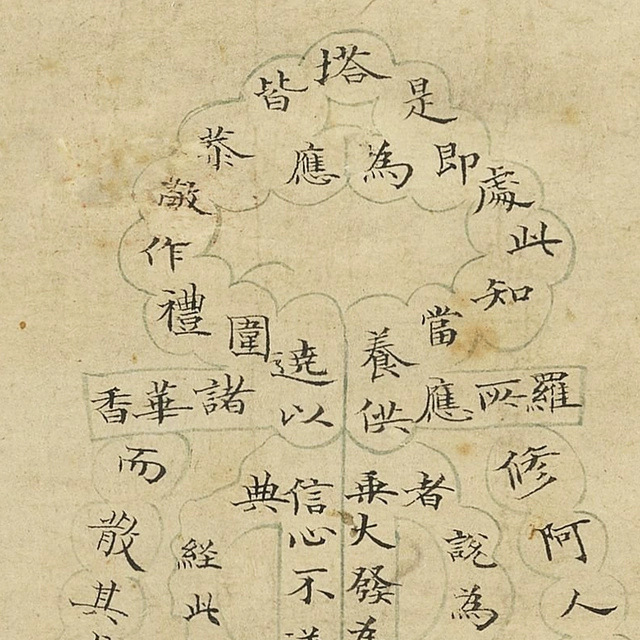 人阿修羅所應供養當知此處即為是塔皆應恭敬作禮圍遶以諸華香而散其
為發大乗者說為
此経典信心不